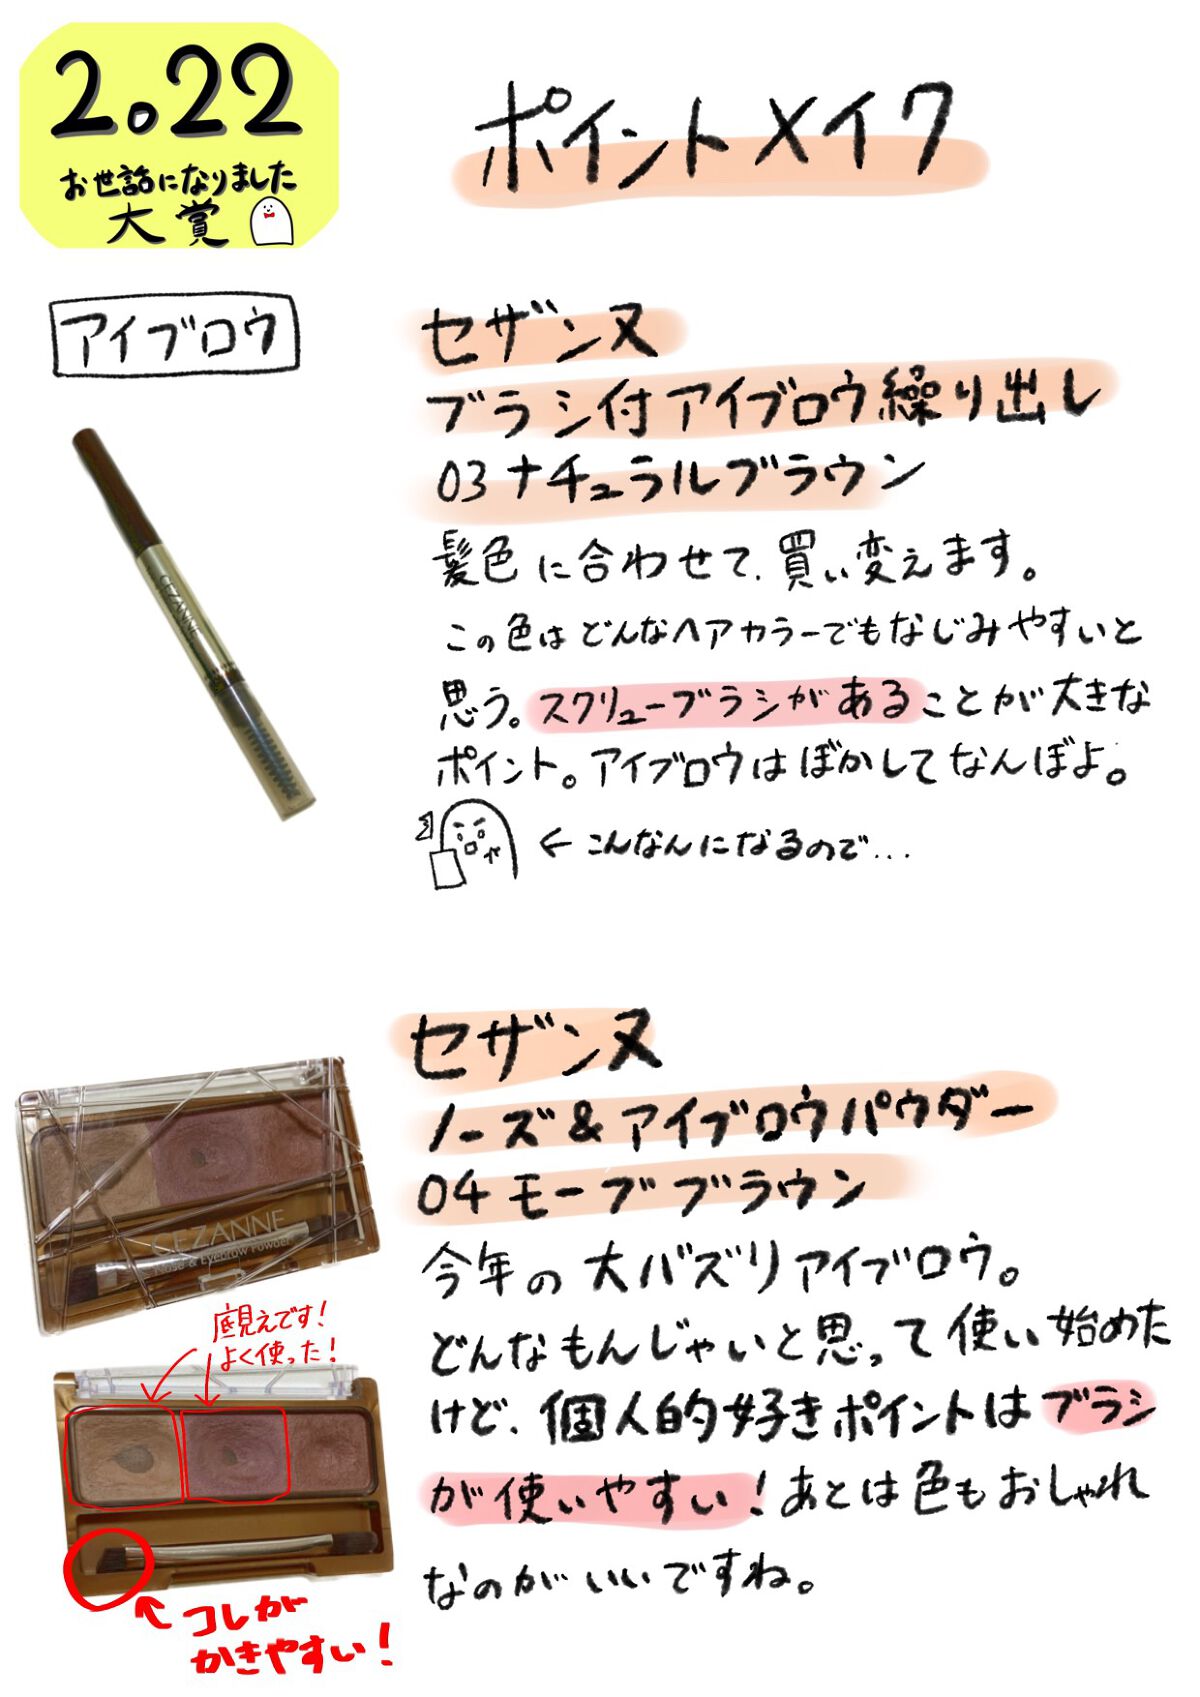 2022
お世話になりました
大賞
ポイントメイク
アイブロウ
セザンヌ
ブラシ付アイブロウ繰り出し
03ナチュラルブラウン
髪色に合わせて、買い変えます。
この色はどんなヘアカラーでもなじみやすいと
思う。スクリューブラシがあることが大きな
ポイント。アイブロウはぼかしてなんぼよ。
←こんなんになるので...
CEZANNE
セザンヌ
ノーズ&アイブロウパウダー
04モーブブラウン
今年の大バズリアイブロウ。
どんなもんじゃいと思って使い始めた
けど、個人的好きポイントはブラシ
が使いやすい!あとは色もおしゃれ
なのがいいですね。
CEZANNE
Nose & Eyebrow Powder
底見えです!
よく使った!
コレが
かきやすい!